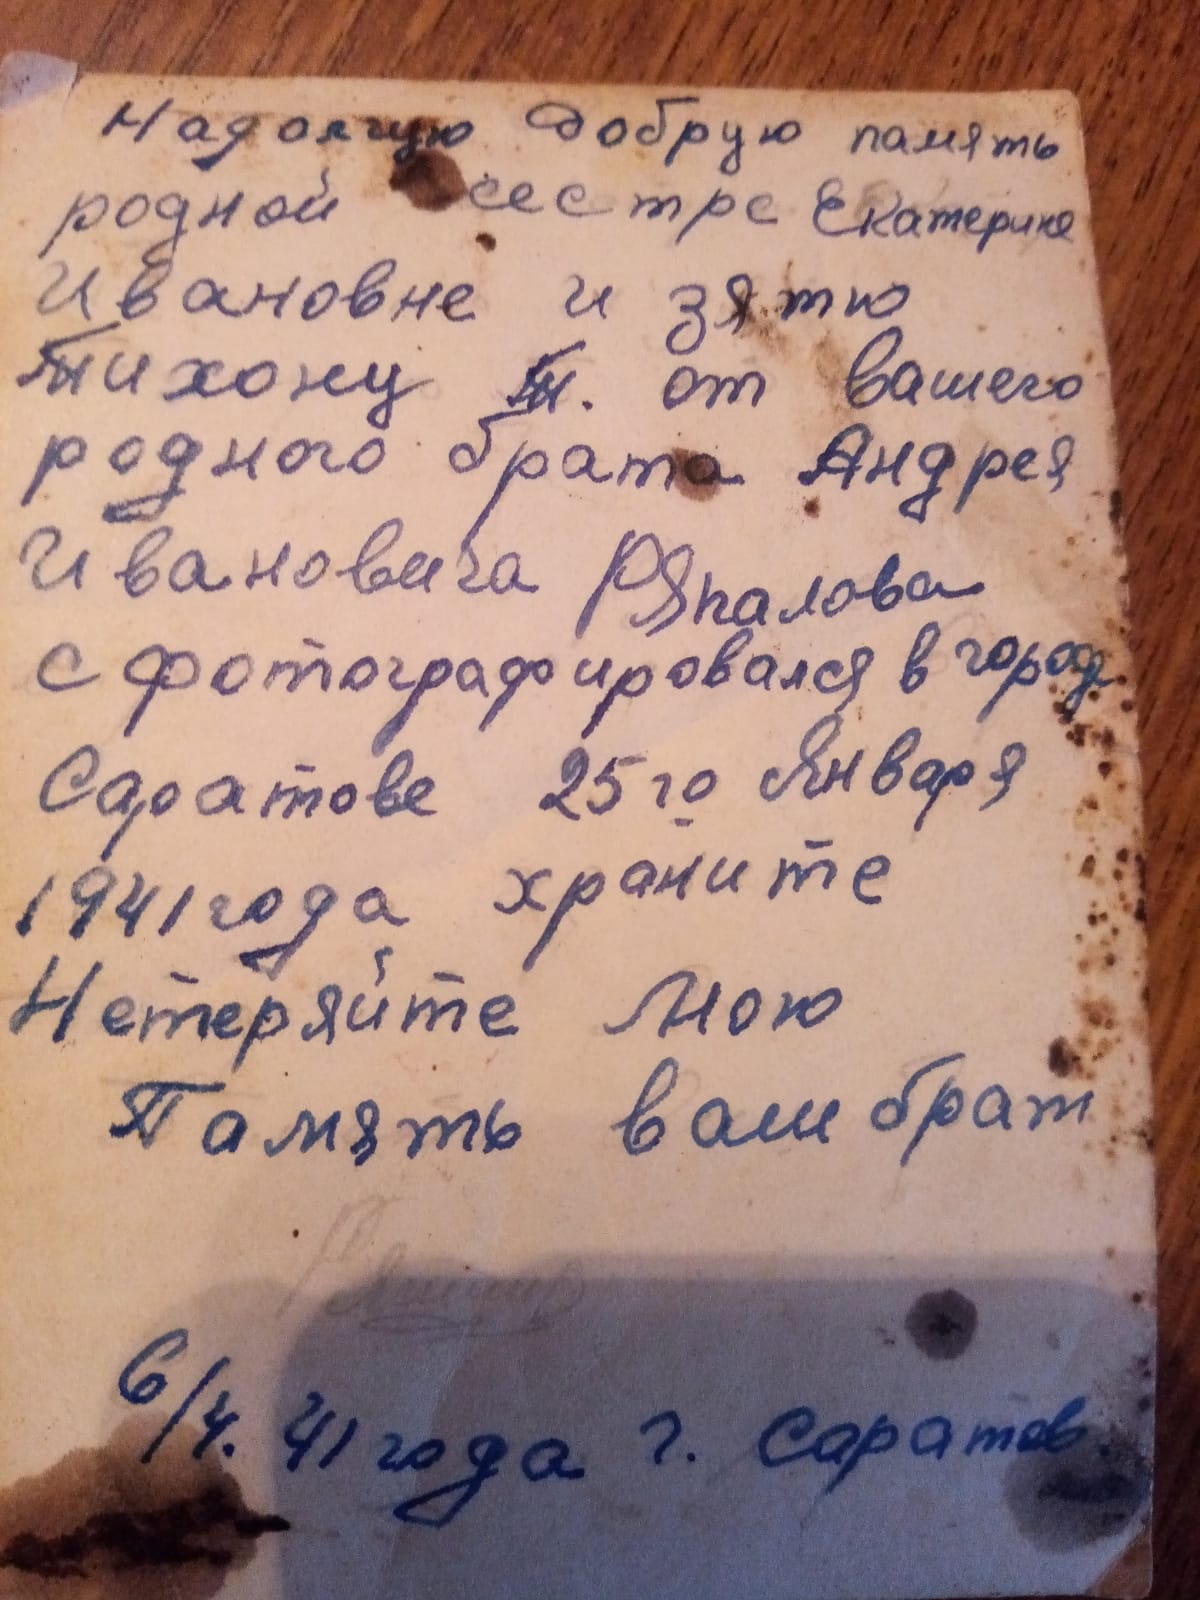 Надолгую добрую память
родной сестре Екатерине
Ивановне и зятю
Тихону Т. от вашего
родного брата Андрея
Ивановича Ряпалова
сфотографировался в город
Саратове 25го Января
1941 года храните
Нетеряйте Мою
Память ваш брат
6/4. 41 года г. Саратов.